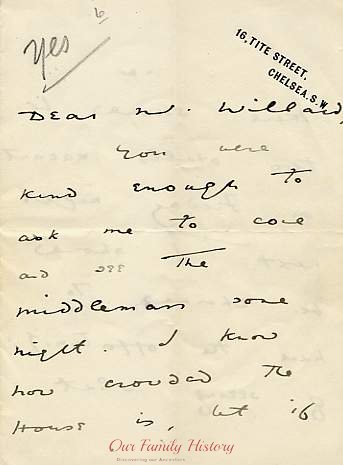 6
Yes
16, TITE STREET,
CHELSEA. S.W.
Dear Mr. Willard,
You were
kind enough to
ask me to come
and see The
middleman some
night. I know
how crowded the
House is, but if
Our Family History
Discovering our Ancestors